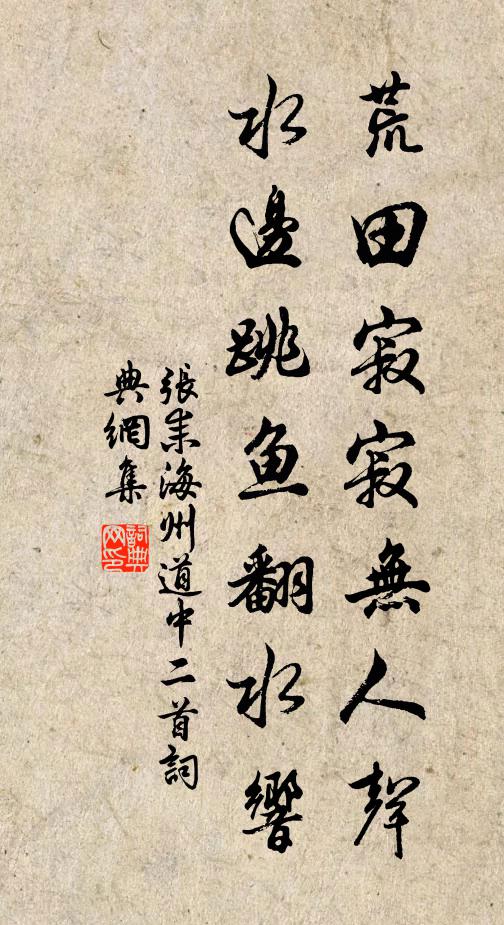 荒田寂寂無人聲
水邊跳魚翻水響
張耒海州道中二首詞
典網集
詞典
網印